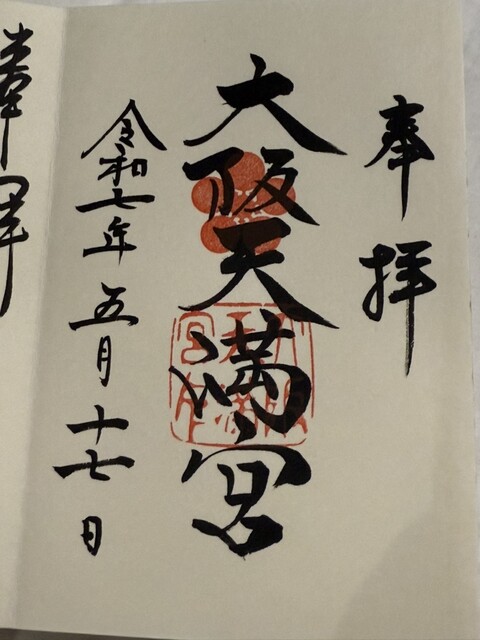 奉拝
大阪天満宮
令和七年五月十七日